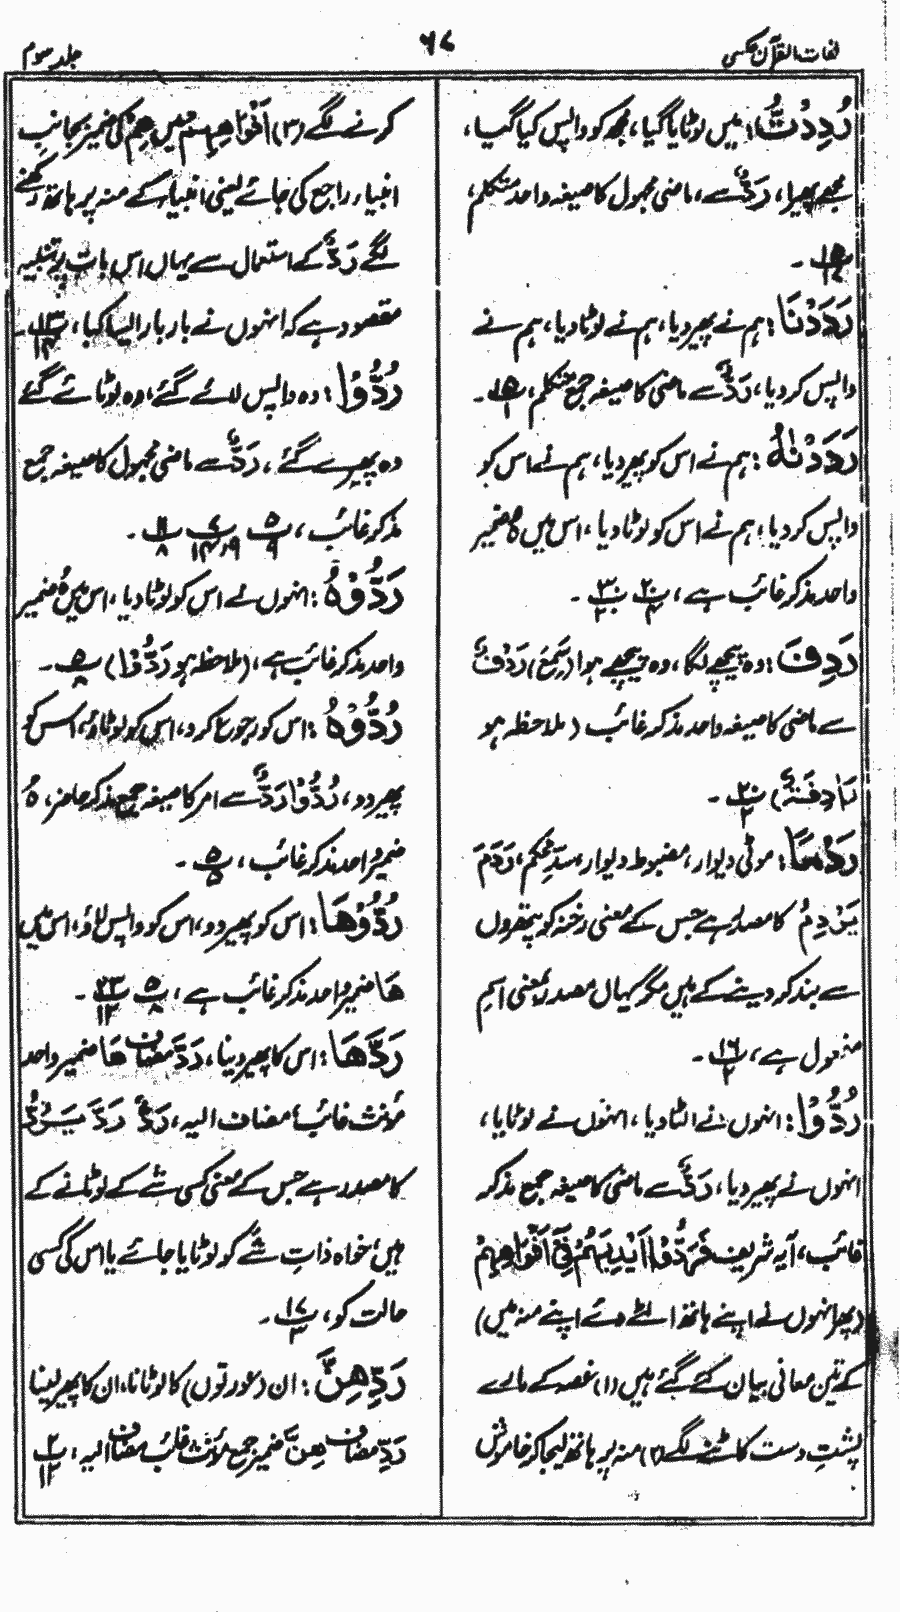 لغات القرآن عکسی
۶۷
جلد سوم
رُدِدْتُّ: میں لوٹایا گیا، مجھ کو واپس کیا گیا،
مجھے پھیرا، رَدٌّ سے، ماضی مجہول کا صیغہ واحد متکلم،
رَدَدْنَا: ہم نے پھیر دیا، ہم نے لوٹا دیا، ہم نے
واپس کر دیا، رَدٌّ سے ماضی کا صیغہ جمع متکلم، پ۱۵
رَدَدْنٰہُ: ہم نے اس کو پھیر دیا، ہم نے اس کو
واپس کر دیا، ہم نے اس کو لوٹا دیا، اس میں ہ ضمیر
واحد مذکر غائب ہے، پ۲۰، پ۳۰
رَدِفَ: وہ پیچھے لگا، وہ پیچھے ہوا (سَمِعَ) رَدْفٌ
سے ماضی کا صیغہ واحد مذکر غائب (ملاحظہ ہو
رَادِفَۃٌ) پ۲۰ ۔
رَدْمًا: موٹی دیوار، مضبوط دیوار، سدِّ محکم، رَدَمَ
یَرْدِمُ کا مصدر ہے جس کے معنی رخنہ کو پتھروں
سے بند کر دینے کے ہیں مگر یہاں مصدر بمعنی اسمِ
مفعول ہے، پ۱۶ ۔
رُدُّوْا: انہوں نے الٹا دیا، انہوں نے لوٹایا،
انہوں نے پھیر دیا، رَدٌّ سے ماضی کا صیغہ جمع مذکر
غائب، آیہ شریفہ فَرَدُّوْا اَیْدِیَہُمْ فِیْ اَفْوَاہِہِمْ
(پھر انہوں نے اپنے ہاتھ الٹے دئے اپنے منہ میں)
کے تین معانی بیان کئے گئے ہیں (۱) غصہ کے مارے
پشتِ دست کاٹنے لگے (۲) منہ پر ہاتھ لیجا کر خاموش
کرنے لگے (۳) اَفْوَاہِہِمْ میں ہِمْ کی ضمیر بجانب
انبیاء راجع کی جائے یعنی انبیاء کے منہ پر ہاتھ رکھنے
لگے رَدٌّ کے استعمال سے یہاں اس بات پر تنبیہ
مقصود ہے کہ انہوں نے بار بار ایسا کیا، پ۱۳ ۔
رُدُّوْا: وہ واپس لائے گئے، وہ لوٹائے گئے
وہ پھیرے گئے، رَدٌّ سے ماضی مجہول کا صیغہ جمع
مذکر غائب، پ۵ پ۷ پ۱۱ ۔
رَدُّوْہُ: انہوں نے اس کو لوٹا دیا، اس میں ہُ ضمیر
واحد مذکر غائب ہے، (ملاحظہ ہو رَدُّوْا) پ۵ ۔
رُدُّوْہُ: اس کو رجوع کرو، اس کو لوٹاؤ، اس کو
پھیر دو، رُدُّوْا رَدٌّ سے امر کا صیغہ جمع مذکر حاضر، ہُ
ضمیر واحد مذکر غائب، پ۵ ۔
رُدُّوْھَا: اس کو پھیر دو، اس کو واپس لاؤ، اس میں
ھَا ضمیر واحد مذکر غائب ہے، پ۵ پ۲۳ ۔
رَدِّھَا: اس کا پھیر دینا، رَدِّ مضاف ھَا ضمیر واحد
مؤنث غائب مضاف الیہ، رَدٌّ رَدَّ یَرُدُّ
کا مصدر ہے جس کے معنی کسی شئے کے لوٹانے کے
ہیں خواہ ذاتِ شئے کو لوٹایا جائے یا اس کی کسی
حالت کو، پ۱۷ ۔
رَدِّھِنَّ: ان (عورتوں) کا لوٹانا، ان کا پھیر لینا
رَدِّ مضاف ھِنَّ ضمیر جمع مؤنث غائب مضاف الیہ، پ۲